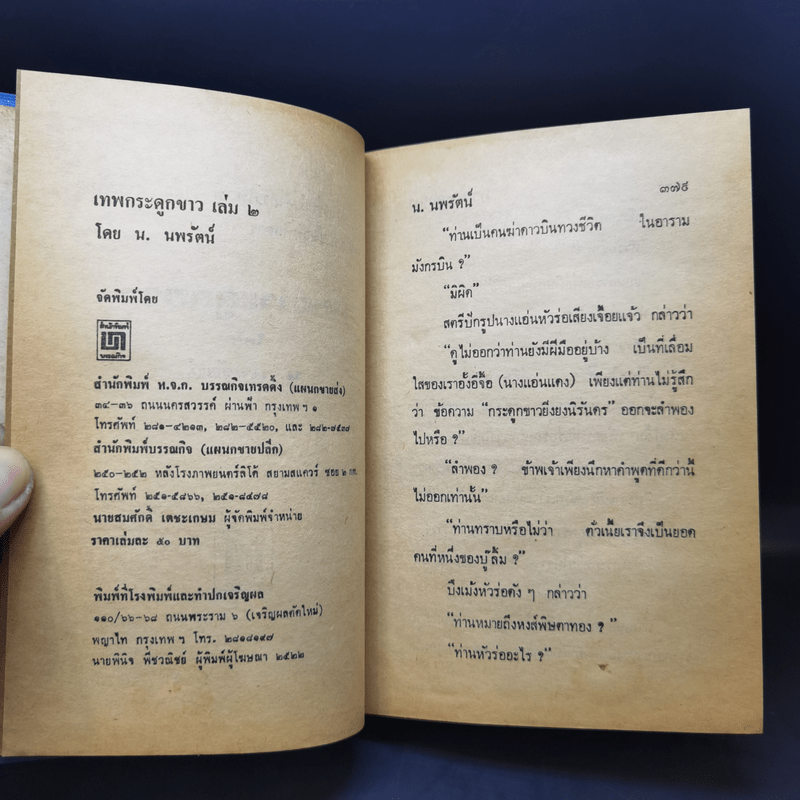 เทพกระดูกขาว เล่ม ๒
โดย น. นพรัตน์
จัดพิมพ์โดย
สำนักพิมพ์
บรรณกิจ
สำนักพิมพ์ ห.จ.ก. บรรณกิจเทรดดิ้ง (แผนกขายส่ง)
๓๔-๓๖ ถนนนครสวรรค์ ผ่านฟ้า กรุงเทพฯ ๑
โทรศัพท์ ๒๘๑-๔๒๑๓, ๒๘๒-๕๕๒๐, และ ๒๘๒-๗๕๓๗
สำนักพิมพ์บรรณกิจ (แผนกขายปลีก)
๒๕๐-๒๕๒ หลังโรงภาพยนตร์ลิโด้ สยามสแควร์ ซอย ๒ กท.
โทรศัพท์ ๒๕๑-๕๘๖๖, ๒๕๑-๘๔๗๘
นายสมศักดิ์ เตชะเกษม ผู้จัดพิมพ์จำหน่าย
ราคาเล่มละ ๕๐ บาท
พิมพ์ที่โรงพิมพ์และทำปกเจริญผล
๑๑๐/๖๖-๖๘ ถนนพระราม ๖ (เจริญผลตัดใหม่)
พญาไท กรุงเทพฯ โทร. ๒๘๑๘๑๙๗
นายพินิจ พีชวณิชย์ ผู้พิมพ์ผู้โฆษณา ๒๕๒๒
น. นพรัตน์ ๓๗๙
“ท่านเป็นคนฆ่าดาวบินทวงชีวิต ในอาราม
มังกรบิน ?”
“มิผิด”
สตรีปักรูปนางแอ่นหัวร่อเสียงเจื้อยแจ้ว กล่าวว่า
“ดูไม่ออกว่าท่านยังมีฝีมืออยู่บ้าง เป็นที่เลื่อม
ใสของเราอั้งอีจื้อ (นางแอ่นแดง) เพียงแต่ท่านไม่รู้สึก
ว่า ข้อความ “กระดูกขาวยิ่งยงนิรันดร” ออกจะลำพอง
ไปหรือ ?”
“ลำพอง ? ข้าพเจ้าเพียงนึกหาคำพูดที่ดีกว่านี้
ไม่ออกเท่านั้น”
“ท่านทราบหรือไม่ว่า ตั่วเนี้ยเราจึงเป็นยอด
คนที่หนึ่งของบู๊ลิ้ม ?”
บึ้งเม้งหัวร่อดัง ๆ กล่าวว่า
“ท่านหมายถึงหงส์พิษตาทอง ?”
“ท่านหัวร่ออะไร ?”